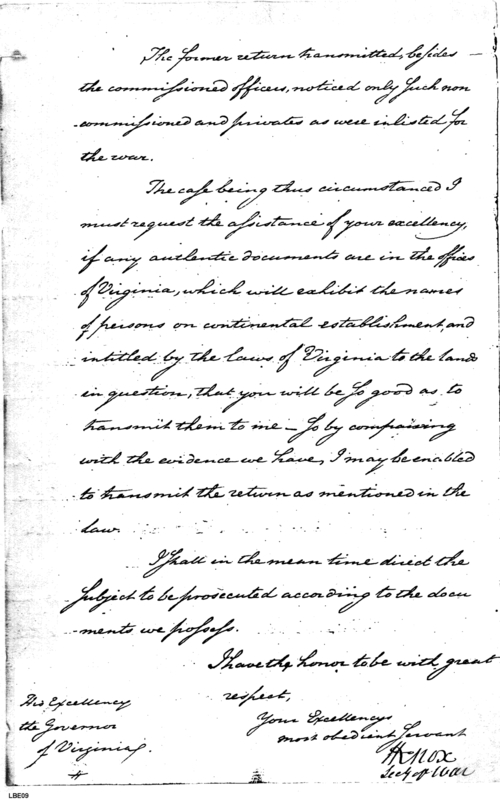 The former return transmitted, besides —
the commissioned officers, noticed only such non
commissioned and privates as were inlisted for
the war.
The case being thus circumstanced I
must request the assistance of your excellency,
if any authentic documents are in the offices
of Virginia, which will exhibit the names
of persons on continental establishment, and
intitled by the laws of Virginia to the lands
in question, that you will be so good as to
transmit them to me — so by comparing
with the evidence we have, I may be enabled
to transmit the return as mentioned in the
law.
I shall in the mean time direct the
subject to be prosecuted according to the docu
ments we possess.
I have the honor to be with great
respect,
Your Excellencys
most obedient Servant
HKnox
Secy of War
His Excellency
the Governor
of Virginia.
LBE09